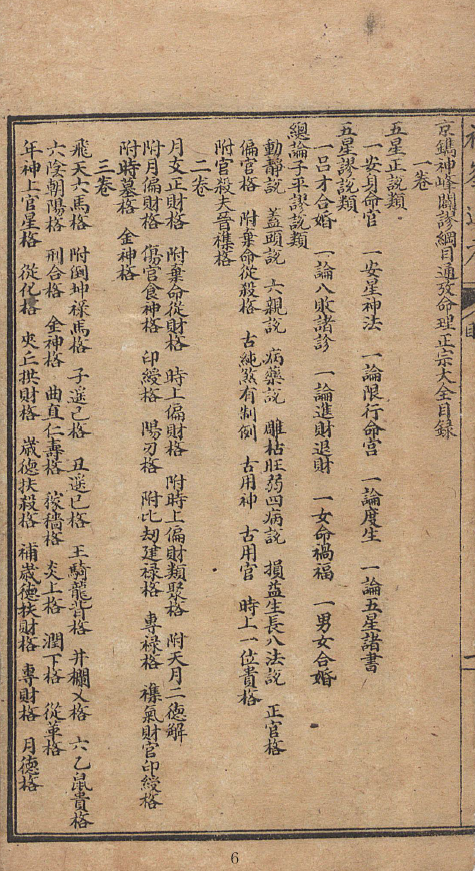 京鐫神峰闢謬綱目通攷命理正宗大全目錄
一卷
五星正說類
一安身命官 一安星神法 一論限行命宮 一論度生 一論五星諸書
五星謬說類
一呂才合婚 一論八敗諸診 一論進財退財 一女命禍福 一男女合婚
總論子平謬說類
動靜說 蓋頭說 六親說 病藥說 雕枯旺弱四病說 損益生長八法說 正官格
偏官格 附棄命從殺格 古純煞有制例 古用神 古用官 時上一位貴格
附官殺去留格
二卷
月支正財格 附棄命從財格 時上偏財格 附時上偏財類聚格 附天月二德解
附月偏財格 傷官食神格 印綬格 陽刃格 附比刼建祿格 專祿格 襍氣財官印綬格
附時墓格 金神格
三卷
飛天六馬格 附倒坤祿馬格 子遥己格 丑遥巳格 王騎龍背格 井欄义格 六乙鼠貴格
六陰朝陽格 刑合格 金神格 曲直仁壽格 稼穡格 炎上格 潤下格 從革格
年神上官星格 從化格 夾丘拱財格 歲德扶殺格 補歲德扶財格 專財格 月德格
6